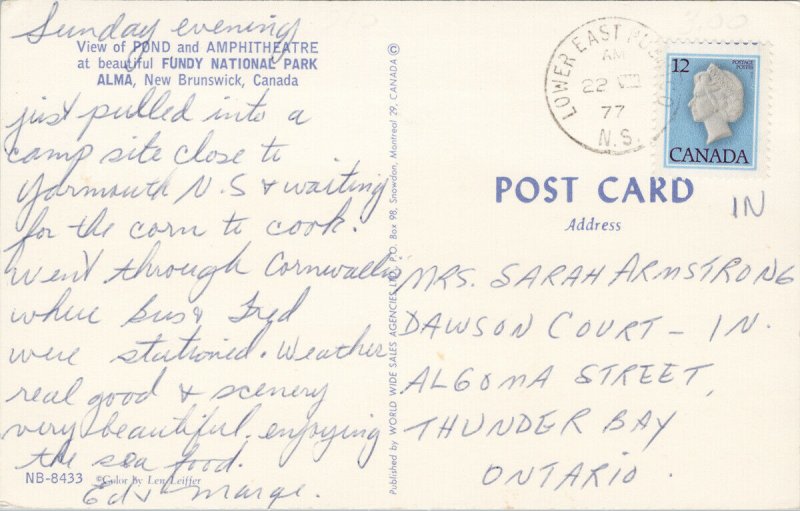 Sunday evening
View of POND and AMPHITHEATRE
at beautiful FUNDY NATIONAL PARK
ALMA, New Brunswick, Canada
just pulled into a
camp site close to
Yarmouth N.S & waiting
for the corn to cook.
Went through Cornwallis
where Bus & Fred
were stationed. Weather
real good & scenery
very beautiful. enjoying
the sea food.
Ed & Marge.
NB-8433 ©Color by Len Leiffer
Published by WORLD WIDE SALES AGENCIES LTD., P.O. Box 98, Snowdon, Montreal 29, CANADA ©
LOWER EAST
AM
22 VIII
77
N.S.
12
POSTAGE
POSTES
CANADA
POST CARD
Address
IN
MRS. SARAH ARMSTRONG
DAWSON COURT - IN.
ALGOMA STREET,
THUNDER BAY
ONTARIO.